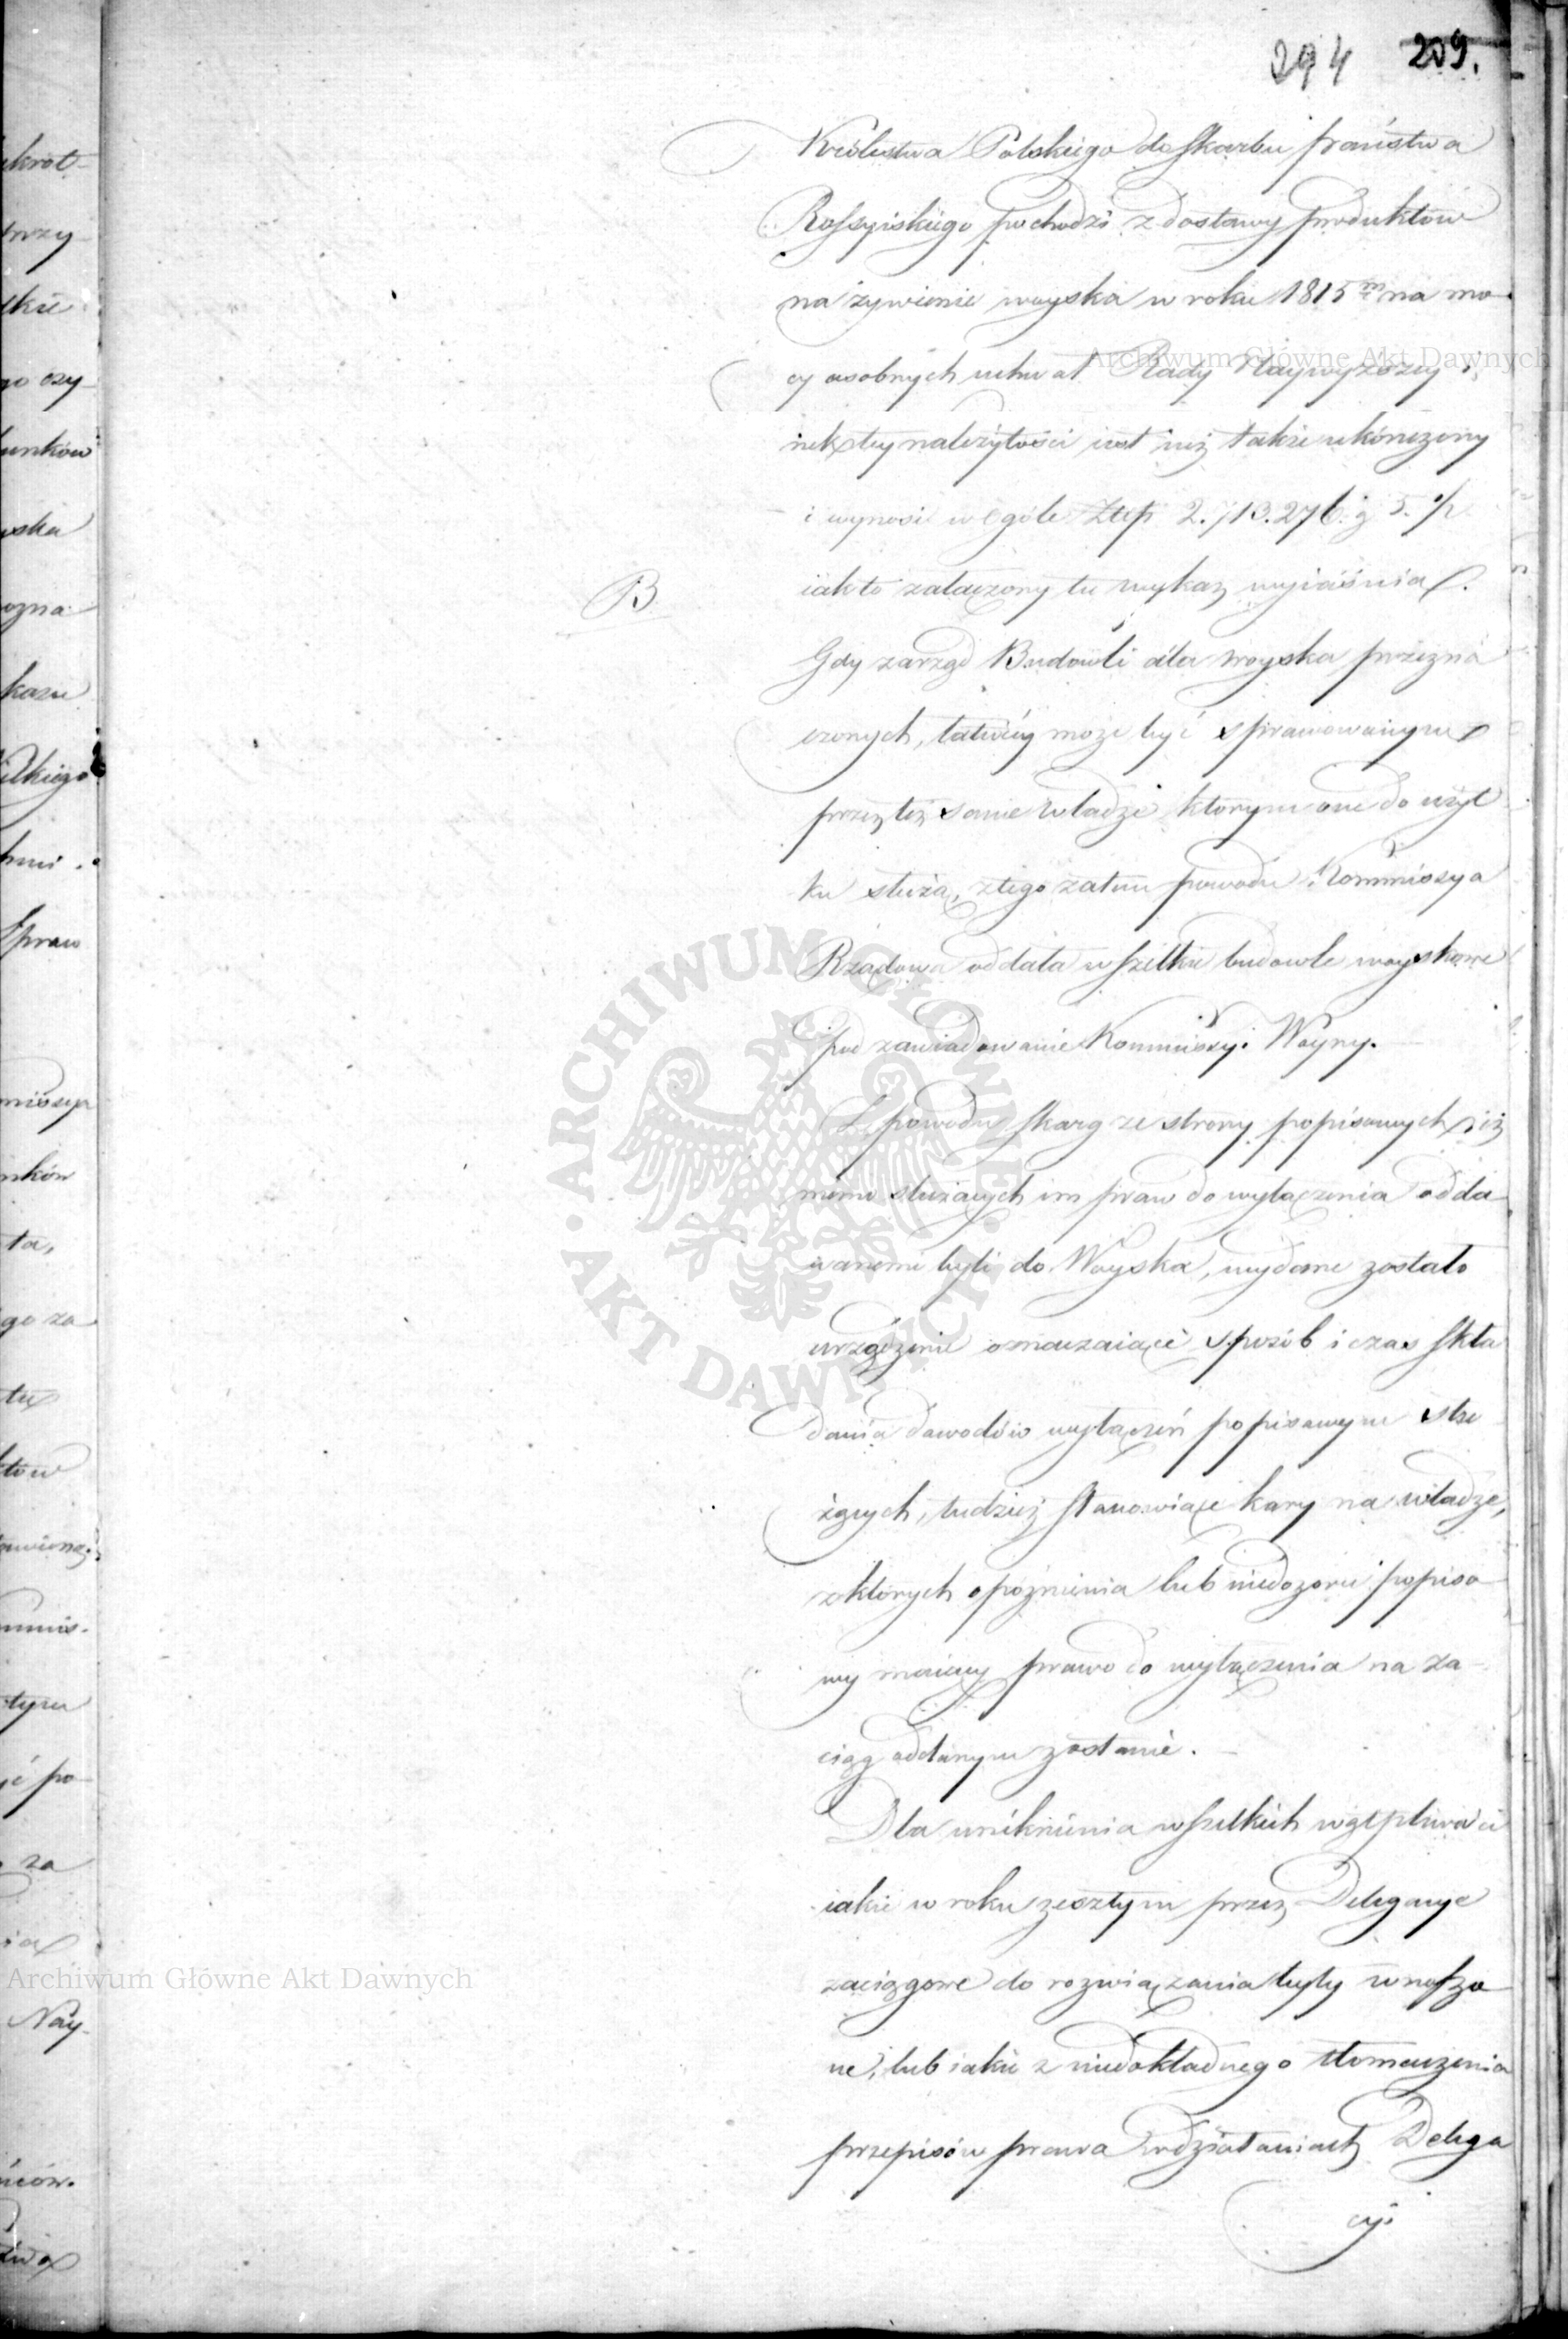 294 209.
Królestwa Polskiego do skarbu państwa
Rossyiskiego pochodzi z dostawy produktów
na żywienie woyska w roku 1815m na mo-
cy osobnych uchwał Rady Naywyższey;
tey należytości iest iuż także ukończony
i wynosi w ogóle Złtp 2.713.276. g 5. 1/2
iak to załączony tu wykaz wyiaśnia.
B
Gdy zarząd Budowli dla woyska przezna
czonych, łatwiey może być sprawowanym
przez też same władze którym one do użyt
ku służą, z tego zatem powodu Kommissya
Rządowa oddała wszelkie budowle woyskowe
pod zawiadowanie Kommissyi Woyny.
Z powodu skarg ze strony popisowych, iż
mimo służących im praw do wyłączenia odda
wanemi byli do Woyska, wydane zostało
urządzenie oznaczaiące sposób i czas skła
dania dowodów wyłączeń popisowym słu
żących, tudzież stanowiące kary na władze,
z których opóźnienia lub niedozoru popiso
wy maiący prawo do wyłączenia na za-
ciąg oddanym zostanie.
Dla uniknienia wszelkich wątpliwości
iakie w roku zeszłym przez Delegacye
zaciągowe do rozwiązania były wnoszo
ne, lub iakie z niedokładnego tłomaczenia
przepisów prawa w działaniach Delega
cyi
ARCHIWUM GŁÓWNE AKT DAWNYCH
Archiwum Główne Akt Dawnych
Archiwum Główne Akt Dawnych